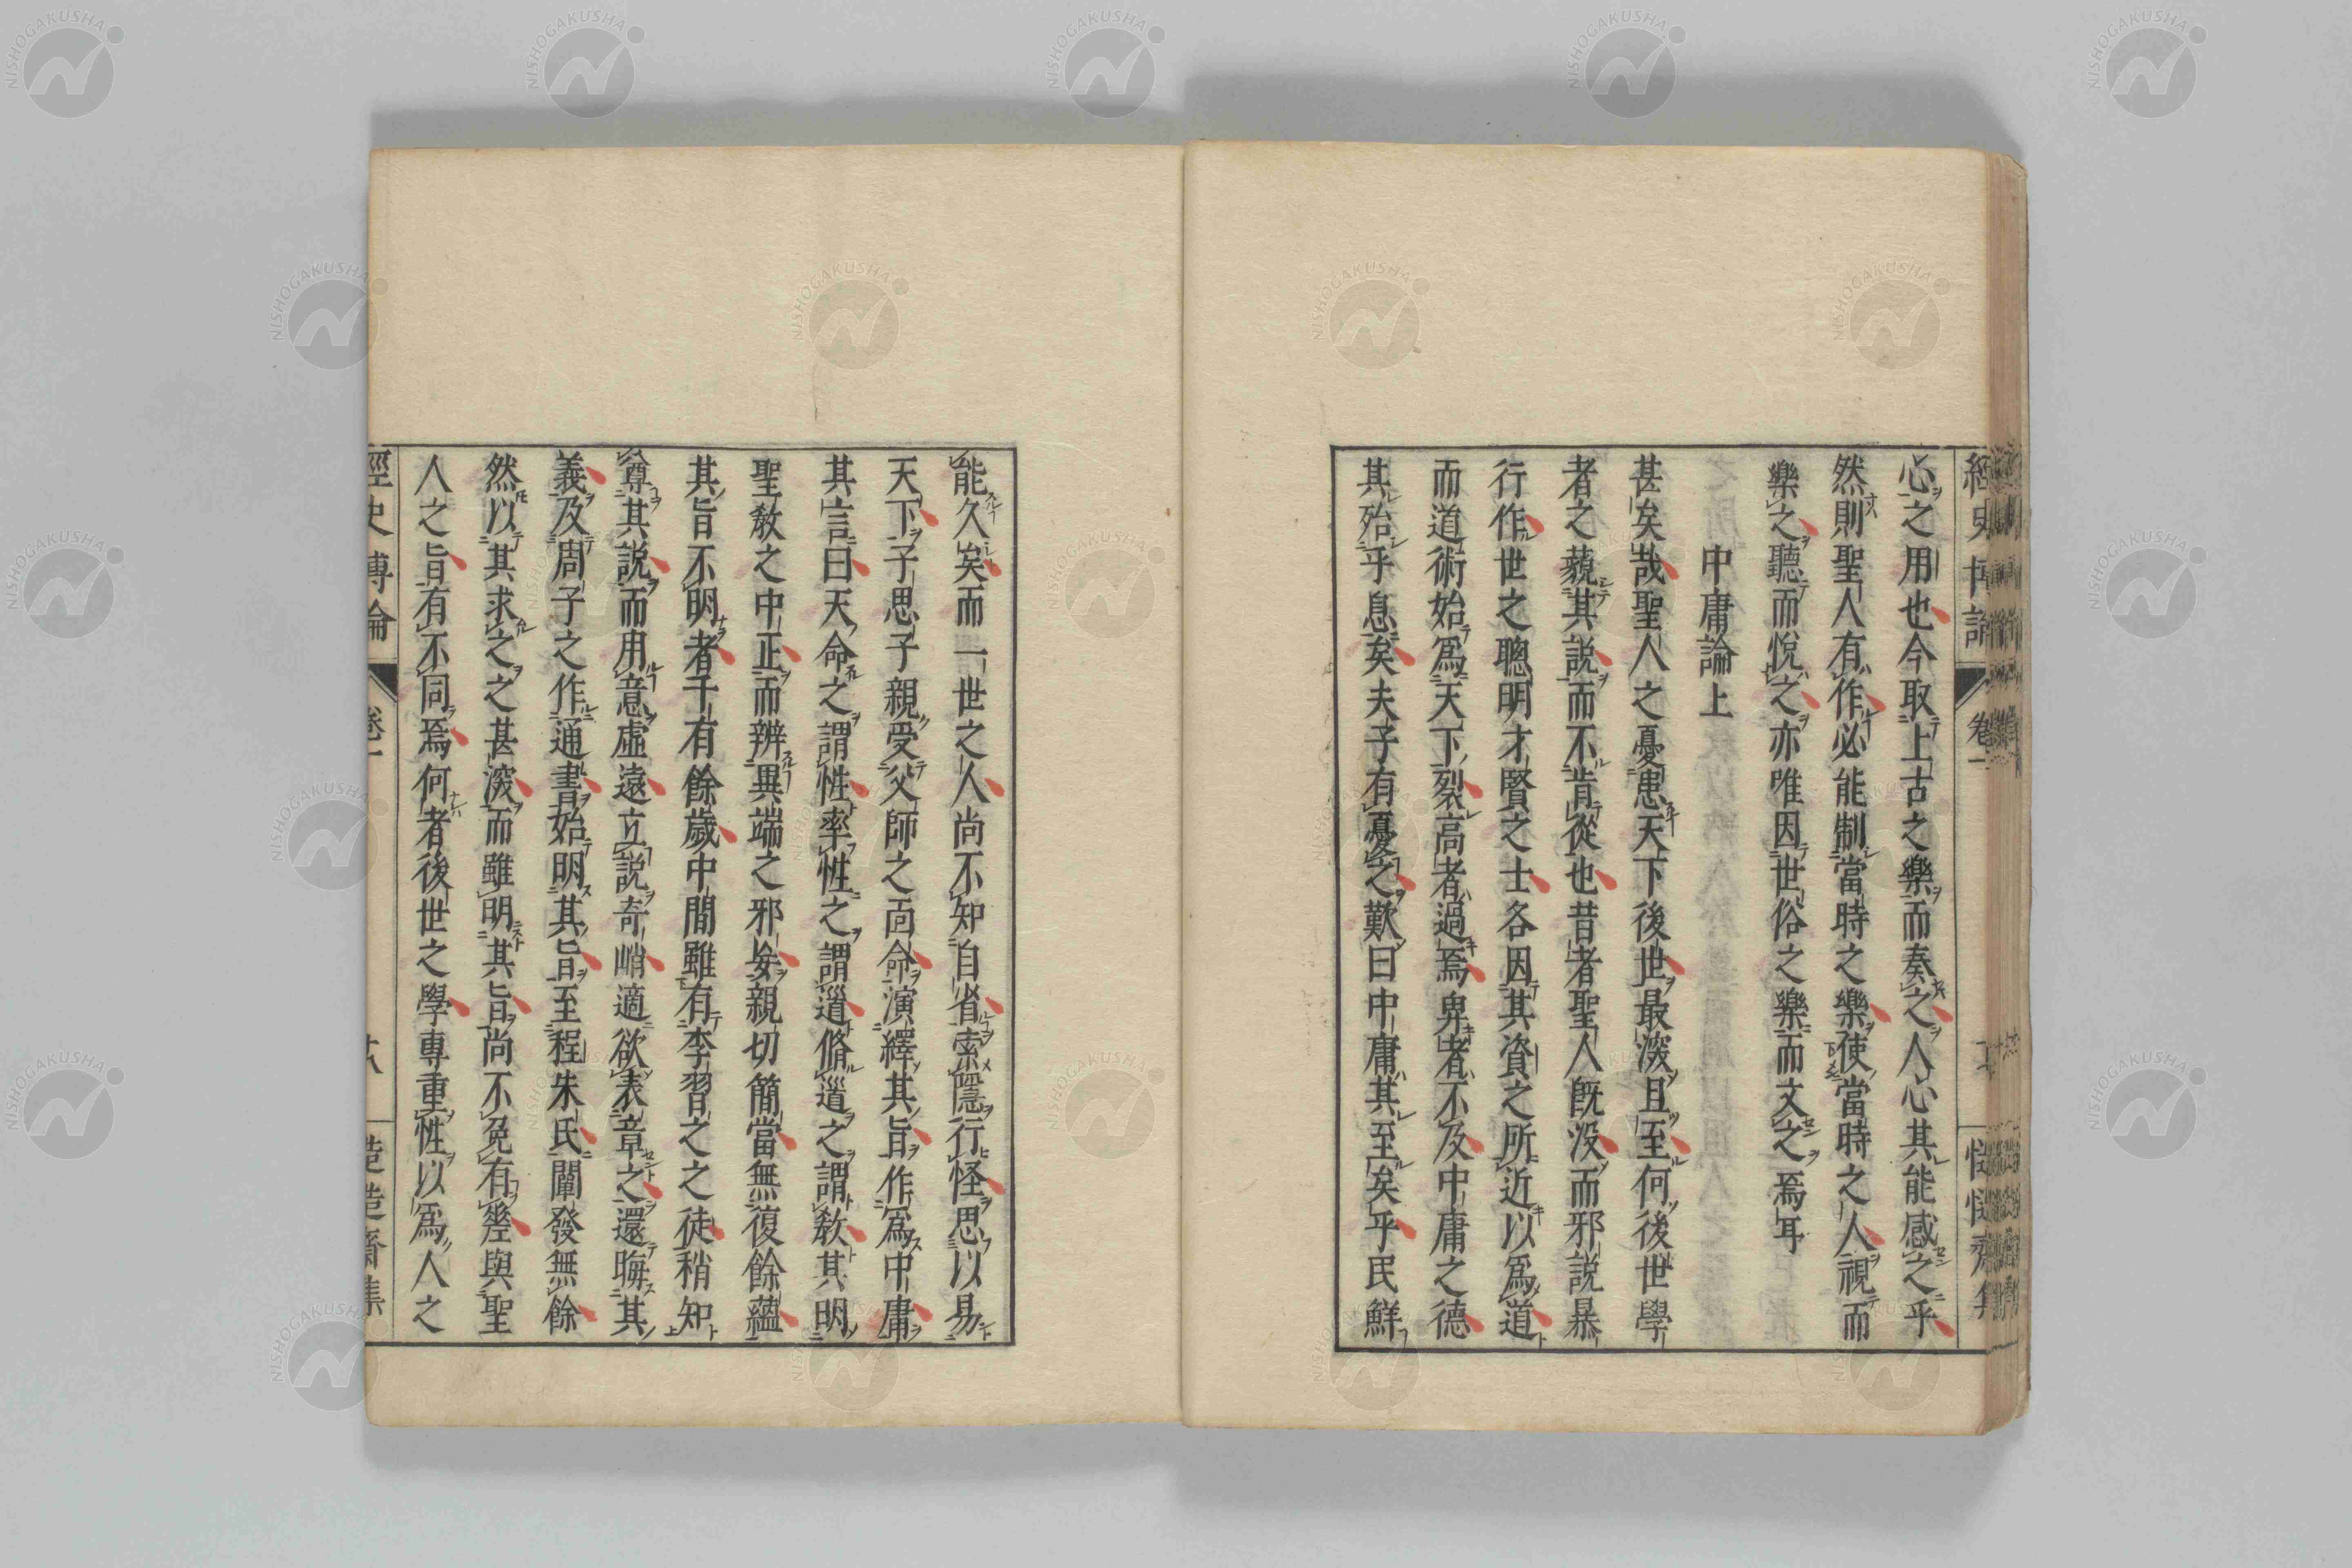 心之用也今取上古之樂而奏之人心其能感之乎
然則聖人有作必能制當時之樂使當時之人視而
樂之聽而悅之亦唯因世俗之樂而文之焉耳
中庸論上
甚矣哉聖人之憂患天下後世最深且至何後世學
者之藐其說而不肯從也昔者聖人既沒而邪說暴
行作世之聰明才賢之士各因其資之所近以為道
而道術始為天下裂高者過焉卑者不及中庸之德
其殆乎息矣夫子有憂之歎曰中庸其至矣乎民鮮
能久矣而一世之人尚不知自省索隱行怪思以易
天下子思子親受父師之面命演繹其旨作為中庸
其言曰天命之謂性率性之謂道脩道之謂教其明
聖教之中正而辨異端之邪妄親切簡當無復餘蘊
其旨不明者千有餘歲中間雖有李習之之徒稍知
尊其說而用意虛遠立說奇峭適欲表章之還晦其
義及周子之作通書始明其旨至程朱氏闡發無餘
然以其求之之甚深而雖明其旨尚不免有差與聖
人之旨有不同焉何者後世之學專重性以為人之
經史博論
卷一
十八
NISHOGAKUSHA